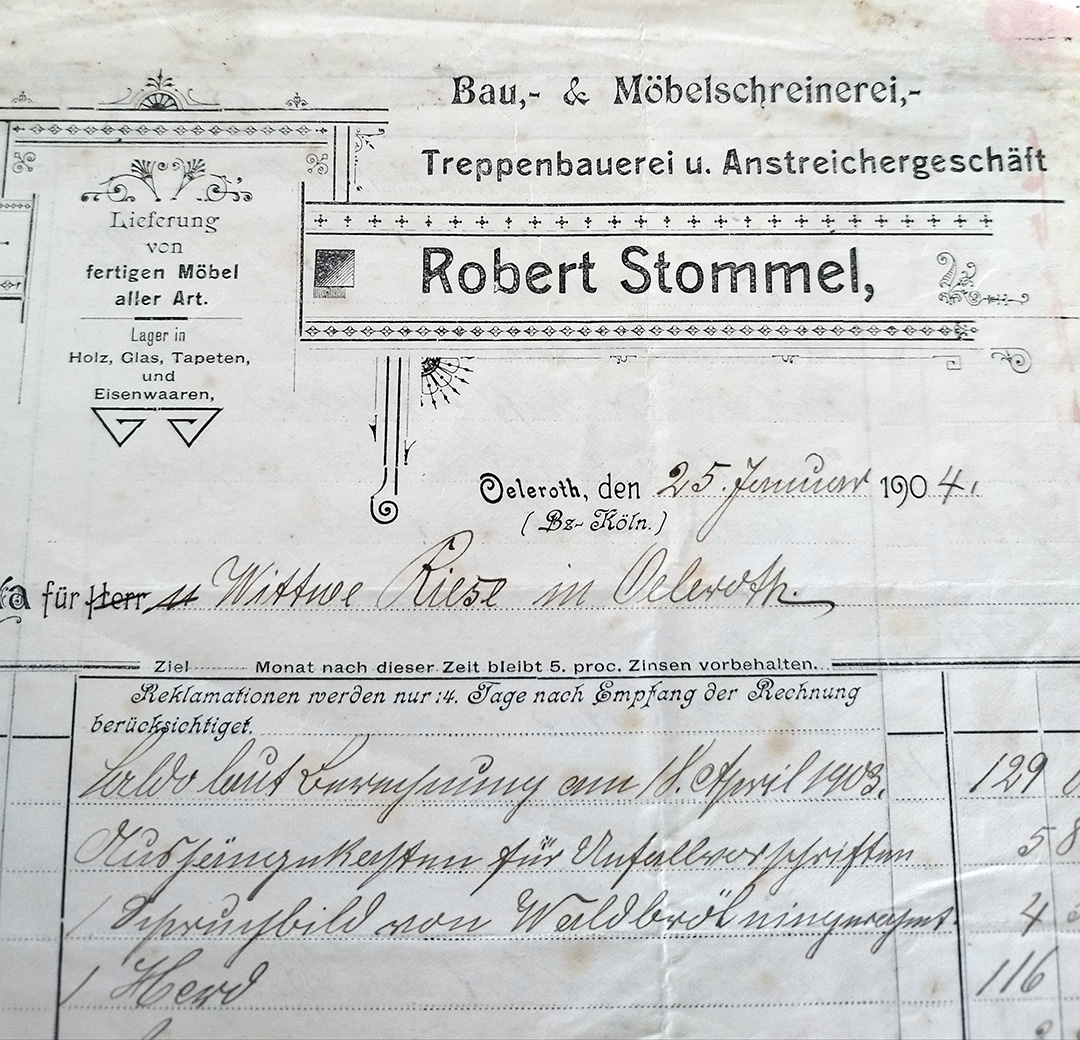 Bau,- & Möbelschreinerei,-
Treppenbauerei u. Anstreichergeschäft
Robert Stommel,
Lieferung
von
fertigen Möbel
aller Art.
Lager in
Holz, Glas, Tapeten,
und
Eisenwaaren,
Oeleroth, den 25. Januar 1904.
(Bz- Köln.)
für Herr u Wittwe Riese in Oeleroth.
Ziel Monat nach dieser Zeit bleibt 5. proc. Zinsen vorbehalten.
Reklamationen werden nur 14. Tage nach Empfang der Rechnung
berücksichtiget.
Saldo laut Berechnung am 18. April 1903. 129
Aushängekasten für Unfallvorschriften 5 8
1 Spruchbild von Waldbröl eingerahmt. 4
1 Herd 116